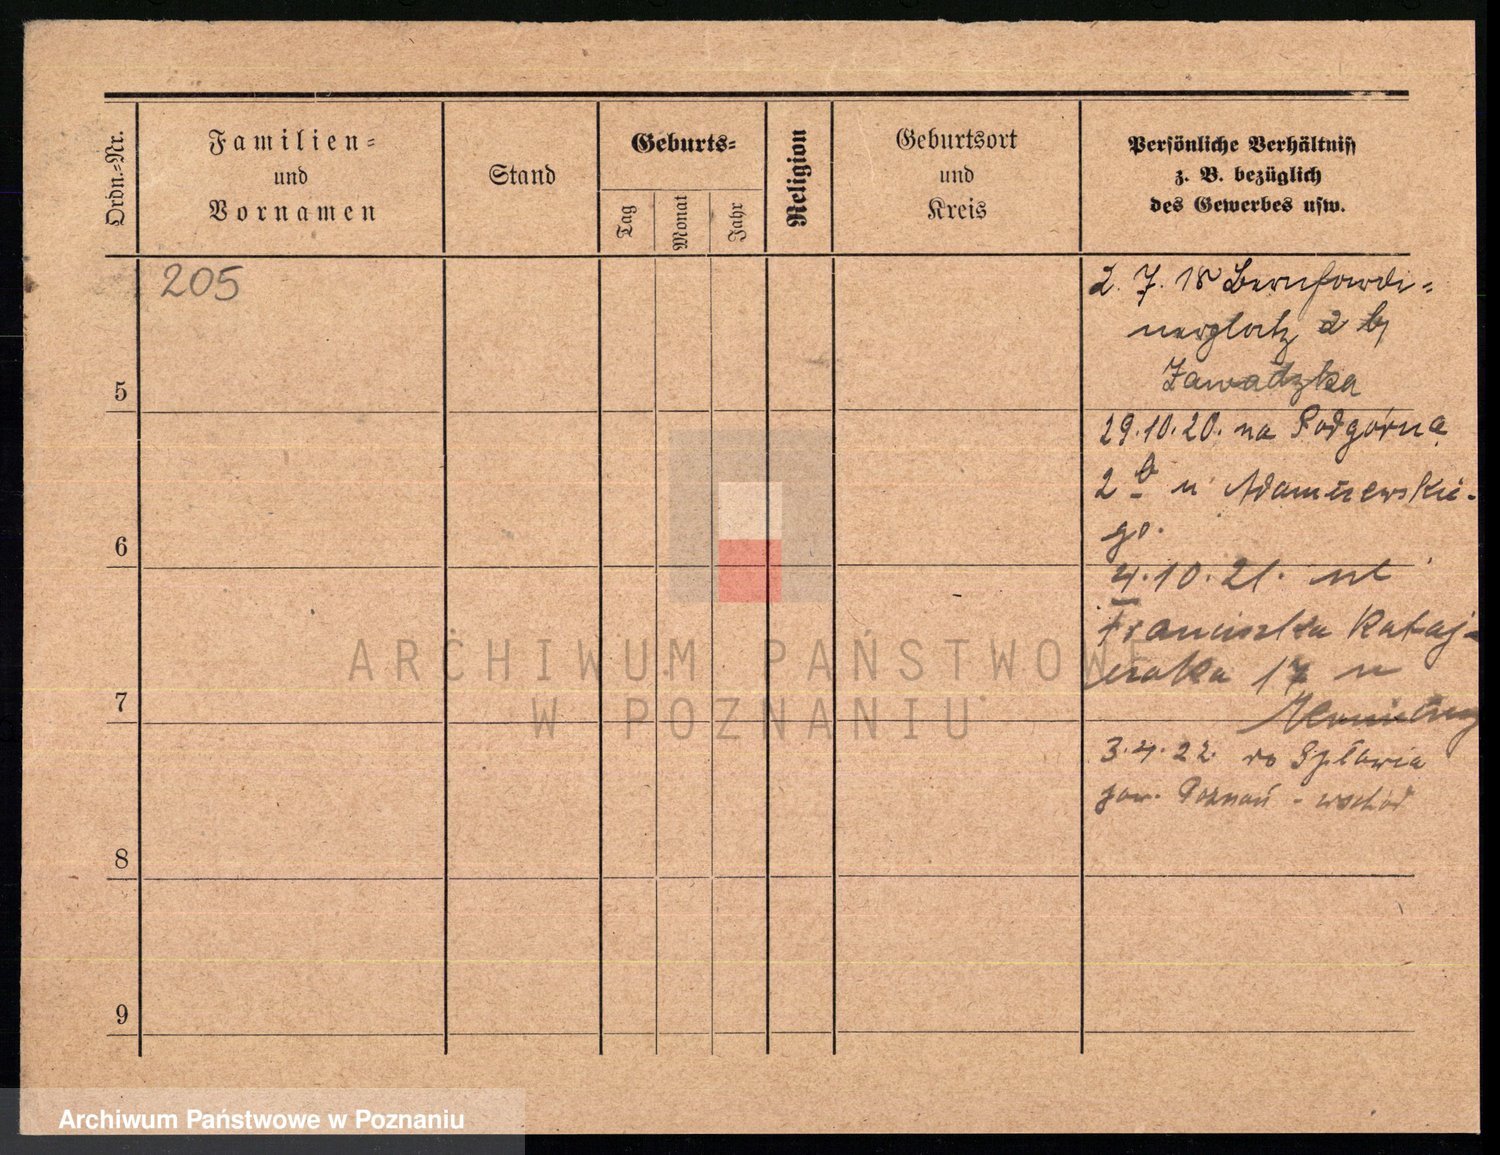 Ordn.-Nr.
Familien-
und
Vornamen
Stand
Geburts-
Tag
Monat
Jahr
Religion
Geburtsort
und
Kreis
Persönliche Verhältniss
z. B. bezüglich
des Gewerbes usw.
205
2. 7. 18 Bernhardi-
nerplatz 2 b/
Zawadzka
5
29.10.20. na Podgórna
2 b u Adamczewskie-
go.
6
4.10.21. ul
Franciszka Rataj-
czaka 17 u
7
3.4.22. do Spławia
pow. Poznań - wschód
8
9
ARCHIWUM PAŃSTWOWE
W POZNANIU
Archiwum Państwowe w Poznaniu